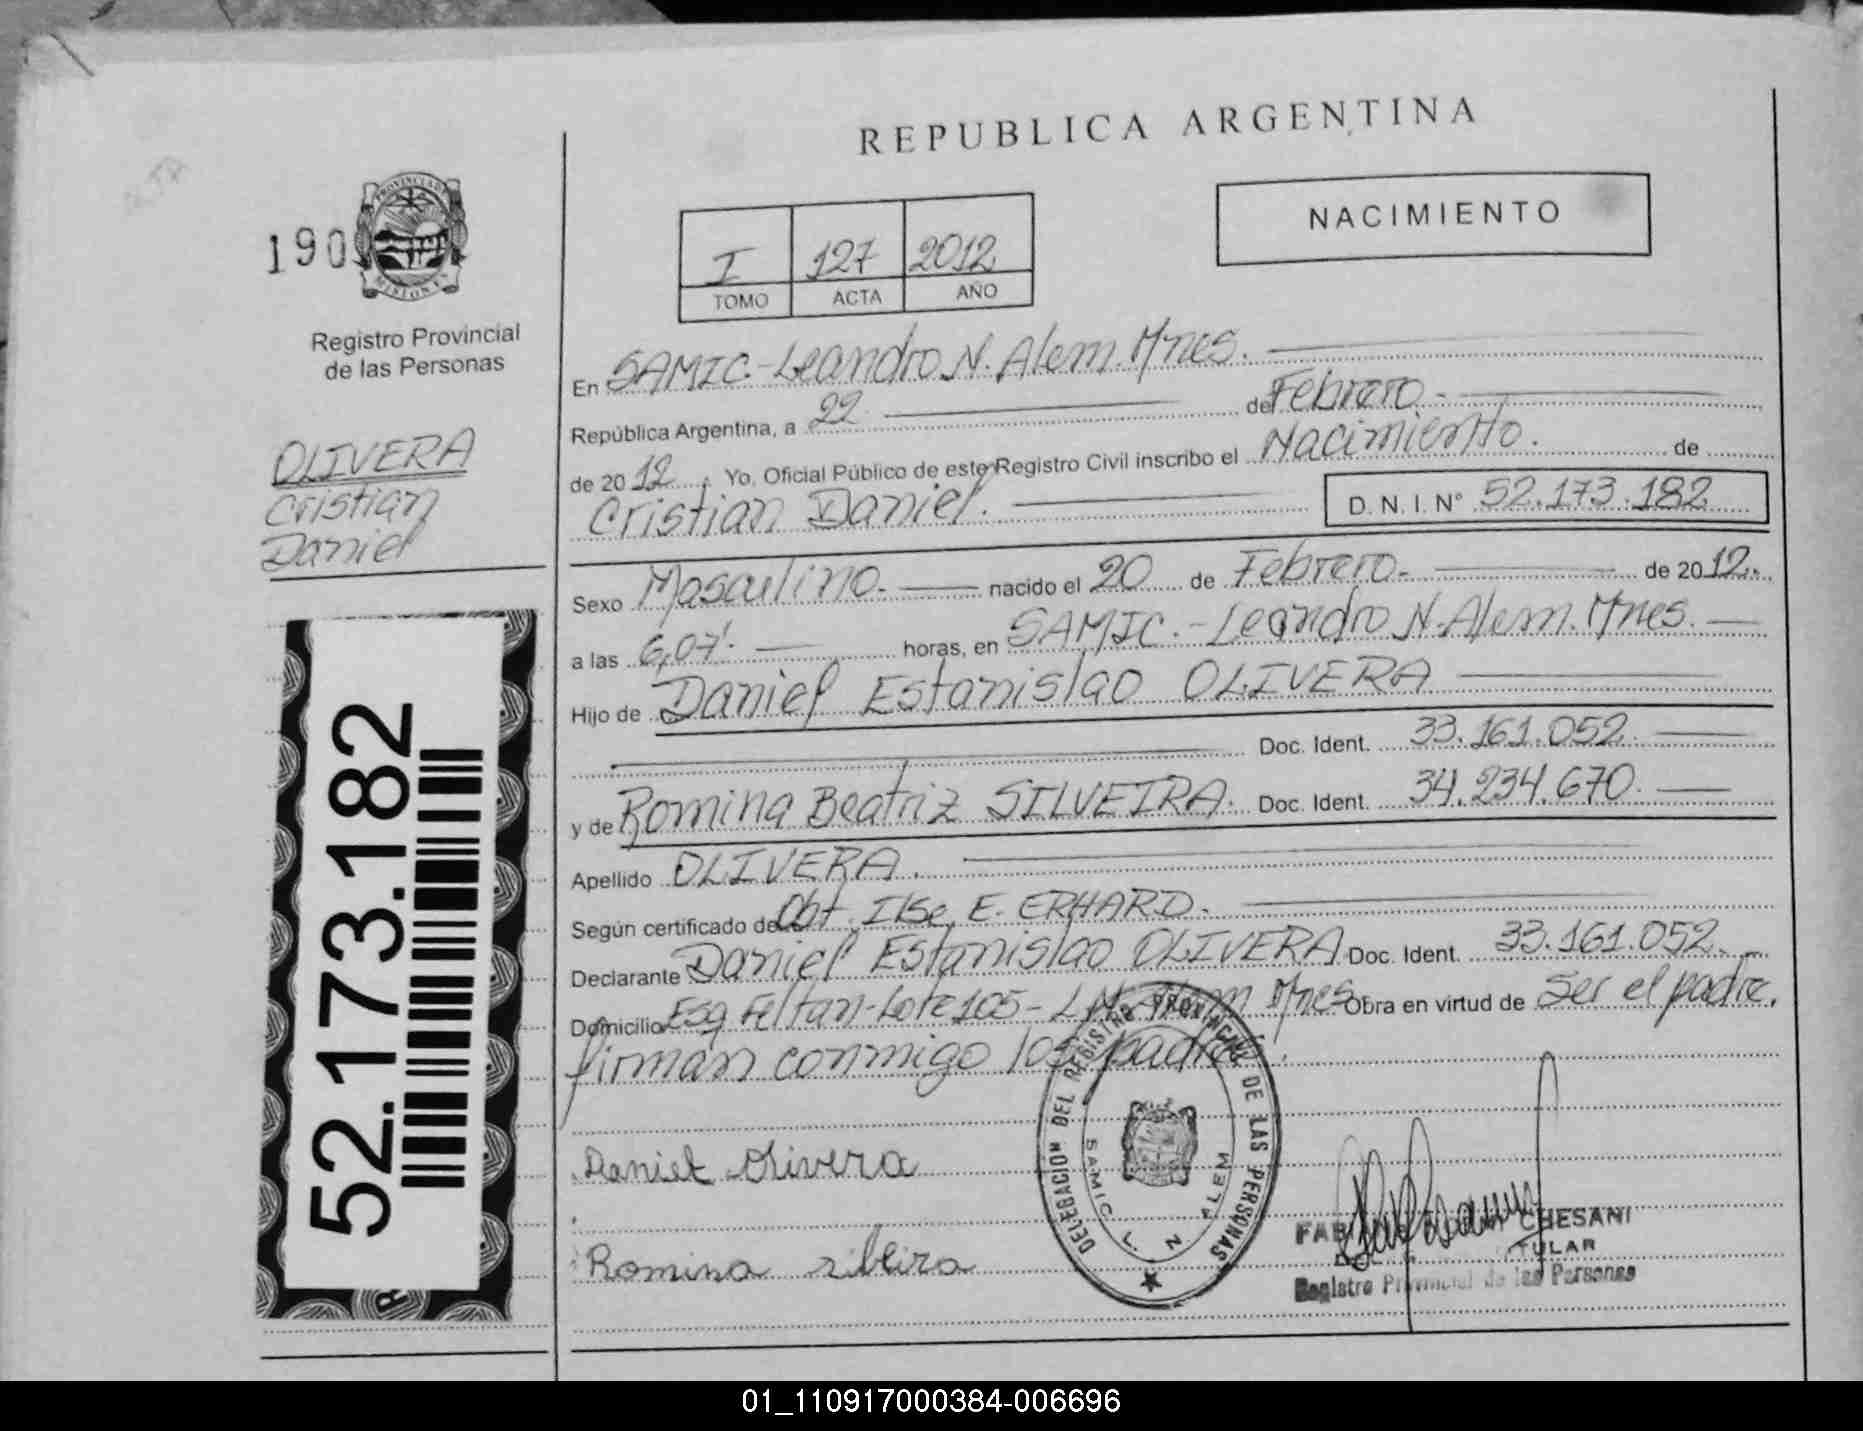 REPUBLICA ARGENTINA
NACIMIENTO
I 127 2012
TOMO ACTA AÑO
190
PROVINCIA DE
MISIONES
Registro Provincial
de las Personas
OLIVERA
Cristian
Daniel
52.173.182
En SAMIC.-Leandro N. Alem. Mnes.
República Argentina, a 22 de Febrero.-
de 2012. Yo, Oficial Público de este Registro Civil inscribo el Nacimiento. de
Cristian Daniel. D. N. I. N° 52.173.182
Sexo Masculino. nacido el 20 de Febrero.- de 2012.
a las 6,07'. horas, en SAMIC.-Leandro N. Alem. Mnes.
Hijo de Daniel Estanislao OLIVERA
Doc. Ident. 33.161.052
y de Romina Beatriz SILVEIRA. Doc. Ident. 34.234.670.
Apellido OLIVERA.
Según certificado de Obt. Ilse. E. ERHARD.
Declarante Daniel Estanislao OLIVERA Doc. Ident. 33.161.052.
Domicilio Lote 105- L.N. Alem Mnes. Obra en virtud de Ser el padre.
firman conmigo los padres.
DELEGACION DEL REGISTRO PROVINCIAL DE LAS PERSONAS
SAMIC. L. N. ALEM
Daniel Olivera
Romina silveira
CHESANI
TULAR
Registro Provincial de las Personas
01_110917000384-006696